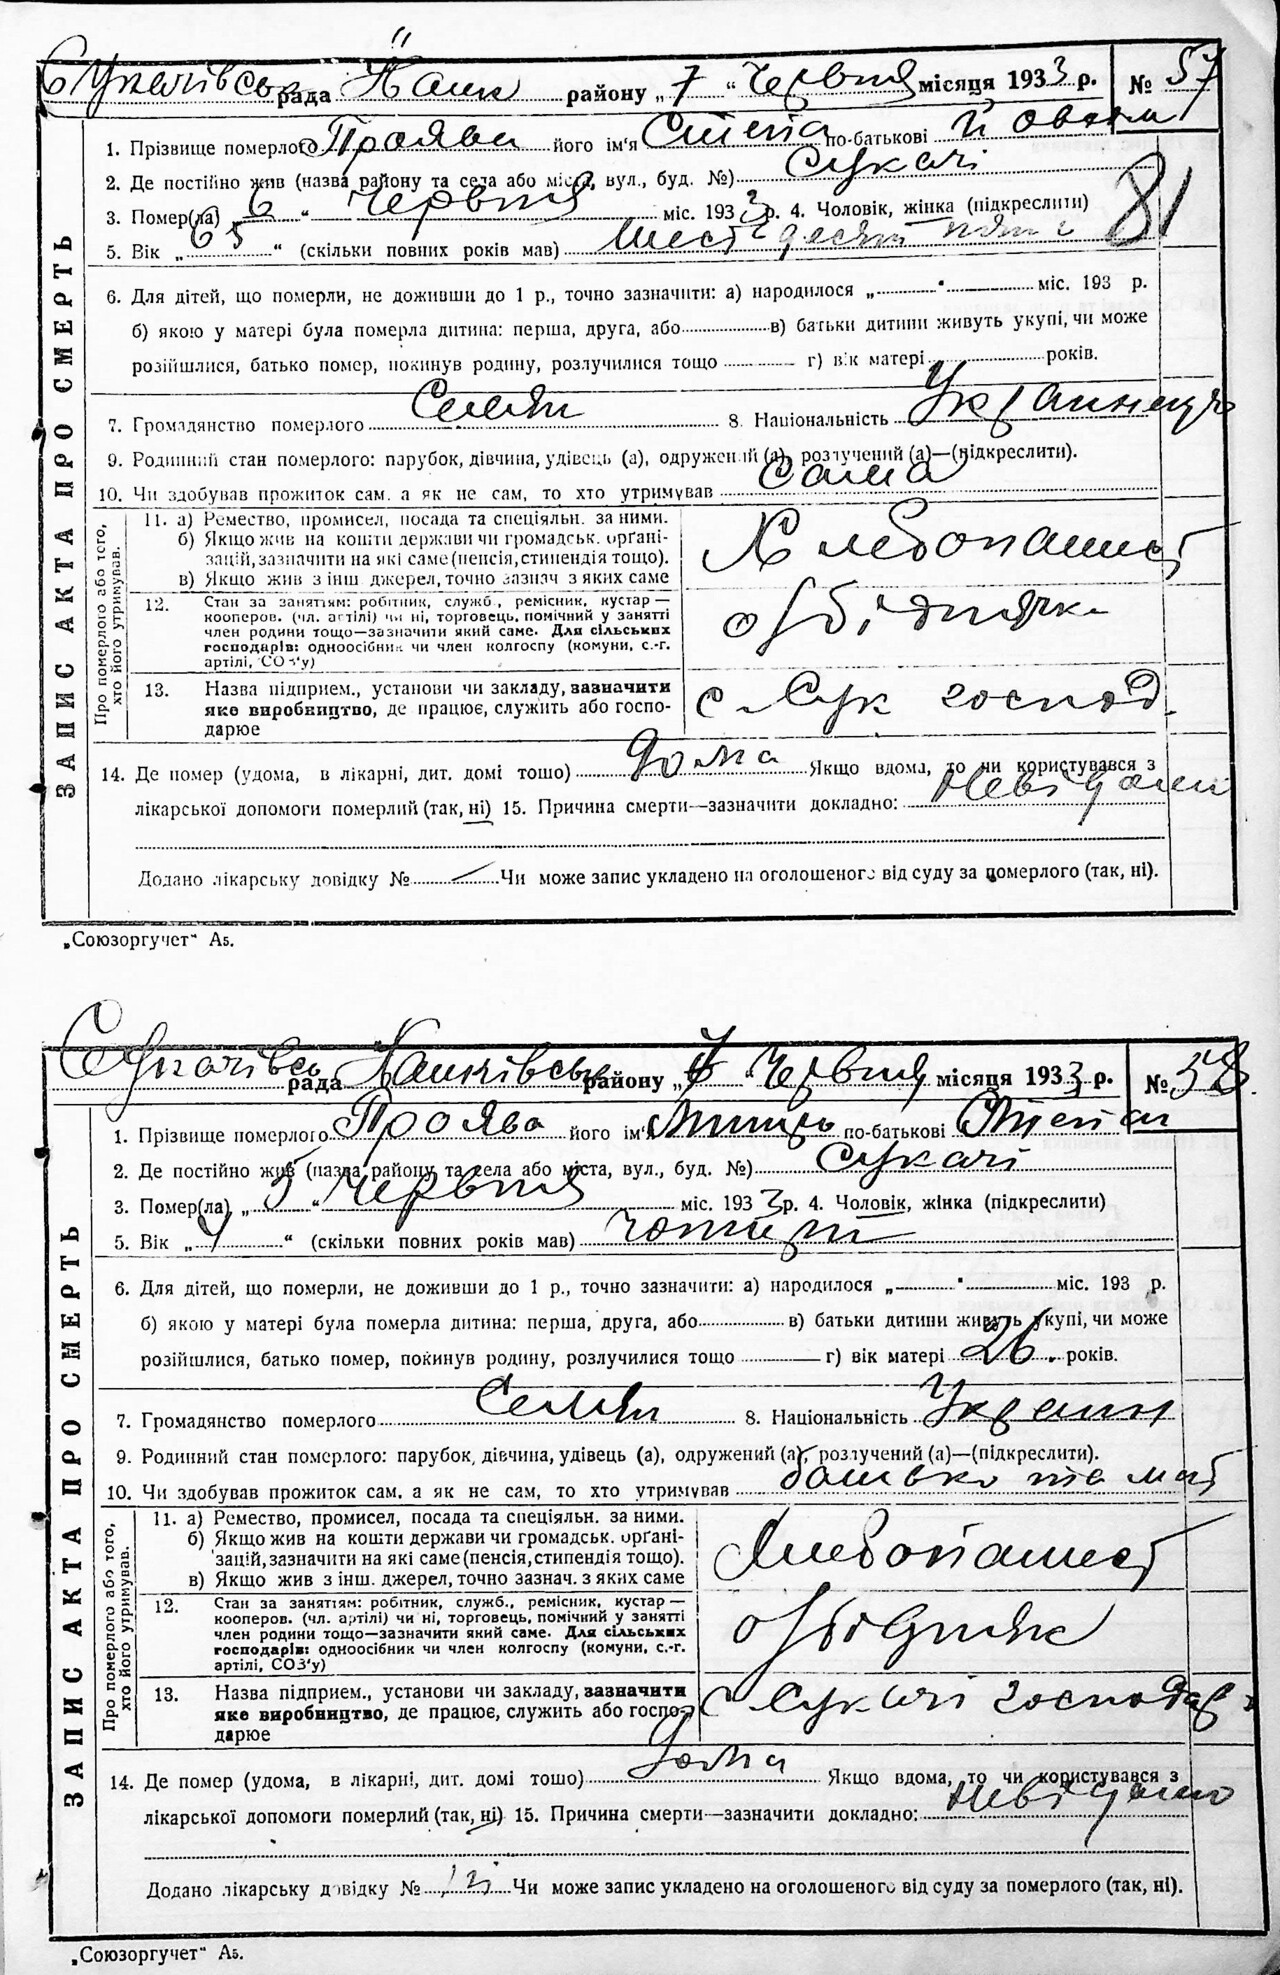 рада район у „ 7 “ Червня місяця 1933 р. № 57
1. Прізвище померлого Проява його ім'я Степа по-батькові
2. Де постійно жив (назва району та села або міста, вул., буд. №) Сукачі
3. Помер(ла) 6 “ Червня міс. 1933 р. 4. Чоловік, жінка (підкреслити) 81
5. Вік „ 65 “ (скільки повних років мав) Шестдесят пять
6. Для дітей, що померли, не доживши до 1 р., точно зазначити: а) народилося „ “ міс. 193 р.
б) якою у матері була померла дитина: перша, друга, або в) батьки дитини живуть укупі, чи може
розійшлися, батько помер, покинув родину, розлучилися тощо г) вік матері років.
7. Громадянство померлого Селян 8. Національність Украинець
9. Родинний стан померлого: парубок, дівчина, удівець (а), одружений (а), розлучений (а)—(підкреслити).
10. Чи здобував прожиток сам, а як не сам, то хто утримував Сама
ЗАПИС АКТА ПРО СМЕРТЬ
Про померлого або того, хто його утримував.
11. а) Ремество, промисел, посада та спеціяльн. за ними.
б) Якщо жив на кошти держави чи громадськ. органі-
зацій, зазначити на які саме (пенсія, стипендія тощо).
в) Якщо жив з інш джерел, точно зазнач з яких саме
Хлебопашест
12. Стан за занятіям: робітник, служб., ремісник, кустар—
кооперов. (чл. артілі) чи ні, торговець, помічний у занятті
член родини тощо—зазначити який саме. Для сільських
господарів: одноосібник чи член колгоспу (комуни, с.-г.
артілі, СОЗ'у)
о/біднячка
13. Назва підприєм., установи чи закладу, зазначити
яке виробництво, де працює, служить або госпо-
дарює
с Сук господ.
14. Де помер (удома, в лікарні, дит. домі тощо) Дома Якщо вдома, то чи користувався з
лікарської допомоги померлий (так, ні) 15. Причина смерти—зазначити докладно: Невідомо
Додано лікарську довідку № Чи може запис укладено на оголошеного від суду за померлого (так, ні).
„Союзоргучет“ А5.
Сукачівсь рада Ханківськ району „ “ Червня місяця 1933 р. № 58
1. Прізвище померлого Проява його ім'я по-батькові Степан
2. Де постійно жив (назва району та села або міста, вул., буд. №) Сукачі
3. Помер(ла) „ 5 “ Червня міс. 1933 р. 4. Чоловік, жінка (підкреслити)
5. Вік „ 4 “ (скільки повних років мав) чотирі
6. Для дітей, що померли, не доживши до 1 р., точно зазначити: а) народилося „ “ міс. 193 р.
б) якою у матері була померла дитина: перша, друга, або в) батьки дитини живуть укупі, чи може
розійшлися, батько помер, покинув родину, розлучилися тощо г) вік матері 26 років.
7. Громадянство померлого Селян 8. Національність Украин
9. Родинний стан померлого: парубок, дівчина, удівець (а), одружений (а), розлучений (а)—(підкреслити).
10. Чи здобував прожиток сам, а як не сам, то хто утримував батько та мат
ЗАПИС АКТА ПРО СМЕРТЬ
Про померлого або того, хто його утримував.
11. а) Ремество, промисел, посада та спеціяльн. за ними.
б) Якщо жив на кошти держави чи громадськ. органі-
зацій, зазначити на які саме (пенсія, стипендія тощо).
в) Якщо жив з інш. джерел, точно зазнач. з яких саме
Хлебопашест
12. Стан за занятіям: робітник, служб., ремісник, кустар—
кооперов. (чл. артілі) чи ні, торговець, помічний у занятті
член родини тощо—зазначити який саме. Для сільських
господарів: одноосібник чи член колгоспу (комуни, с.-г.
артілі, СОЗ'у)
о/бідняк
13. Назва підприєм., установи чи закладу, зазначити
яке виробництво, де працює, служить або госпо-
дарює
с Сукачі господар
14. Де помер (удома, в лікарні, дит. домі тощо) Дома Якщо вдома, то чи користувався з
лікарської допомоги померлий (так, ні) 15. Причина смерти—зазначити докладно: Невідомо
Додано лікарську довідку № Чи може запис укладено на оголошеного від суду за померлого (так, ні).
„Союзоргучет“ А5.